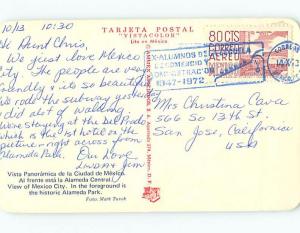 10/13 10:30
TARJETA POSTAL
"VISTACOLOR"
Life en México
Hi Aunt Chris,
We just love Mexico
City. The people are very
friendly & its so beautiful
We rode the subway yesterday
& did alot of walking.
Were staying at the Del Prado
which is the 1st hotel on the
picture - right across from
Alameda Park.
Our Love
Linda & Jim
Vista Panorámica de la Ciudad de México.
Al frente está la Alameda Central.
View of Mexico City. In the foreground is
the historic Alameda Park.
Foto: Mark Turok
80 CTS
CORREO
AEREO
MEXICO
EX-ALUMNOS DE
COMERCIO Y
ADMINISTRACION
1947-1972
Mrs Christina Cava
566 So 13th St
San Jose, California
USA